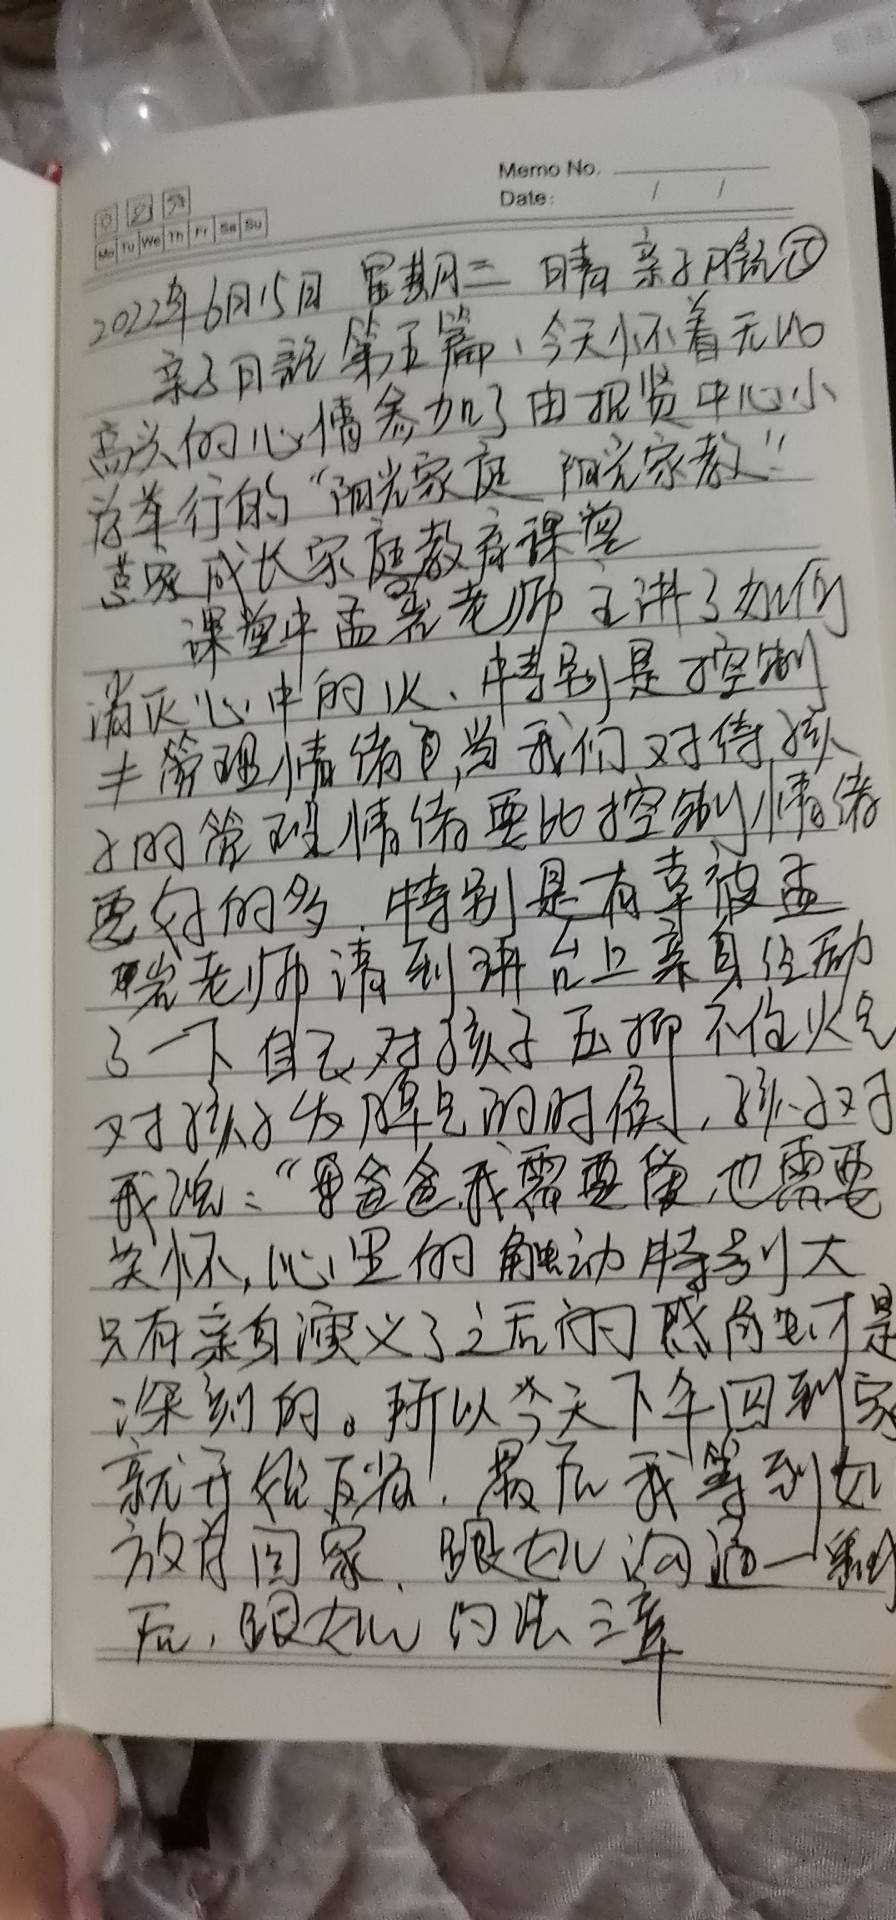 Memo No.
Date: / /
Mo Tu We Th Fr Sa Su
2022年6月15日 星期三 晴 亲子日记⑤
亲子日记第五篇、今天怀着无比
高兴的心情参加了由招贤中心小
举行的“阳光家庭 阳光家教”
成长家庭教育课堂
课堂中孟岩老师主讲了如何
消灭心中的火、特别是控制
管理情绪 当我们对待孩
子的管理情绪要比控制情绪
要好的多.特别是有幸被孟
岩老师请到讲台上亲自
了一下自己对孩子压抑不住火气
对孩子发脾气的时候，孩子对
我说：“爸爸我需要 也需要
关怀,心里的触动特别大
只有亲自演义了之后的感角虫才是
深刻的。所以今天下午回到家
就开始反省.最后我等到女儿
放学回家.跟女儿沟通一
后.跟女儿约法三章